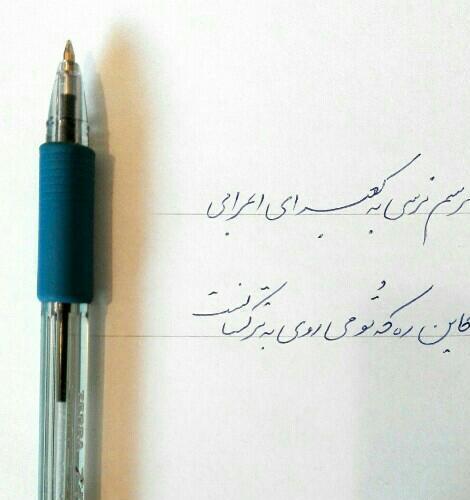 ترسم نرسی به کعبه ای اعرابی
کاین ره که تو می روی به ترکستانست
ZEBRA